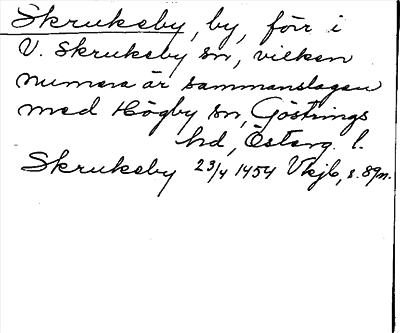 Skruksby, by, förr i
V. Skruksby sn, vilken
numera är sammanslagen
med Högby sn, Göstrings
hd, Österg. l.
Skruksby 23/4 1454 Vkjb, s. 89n.